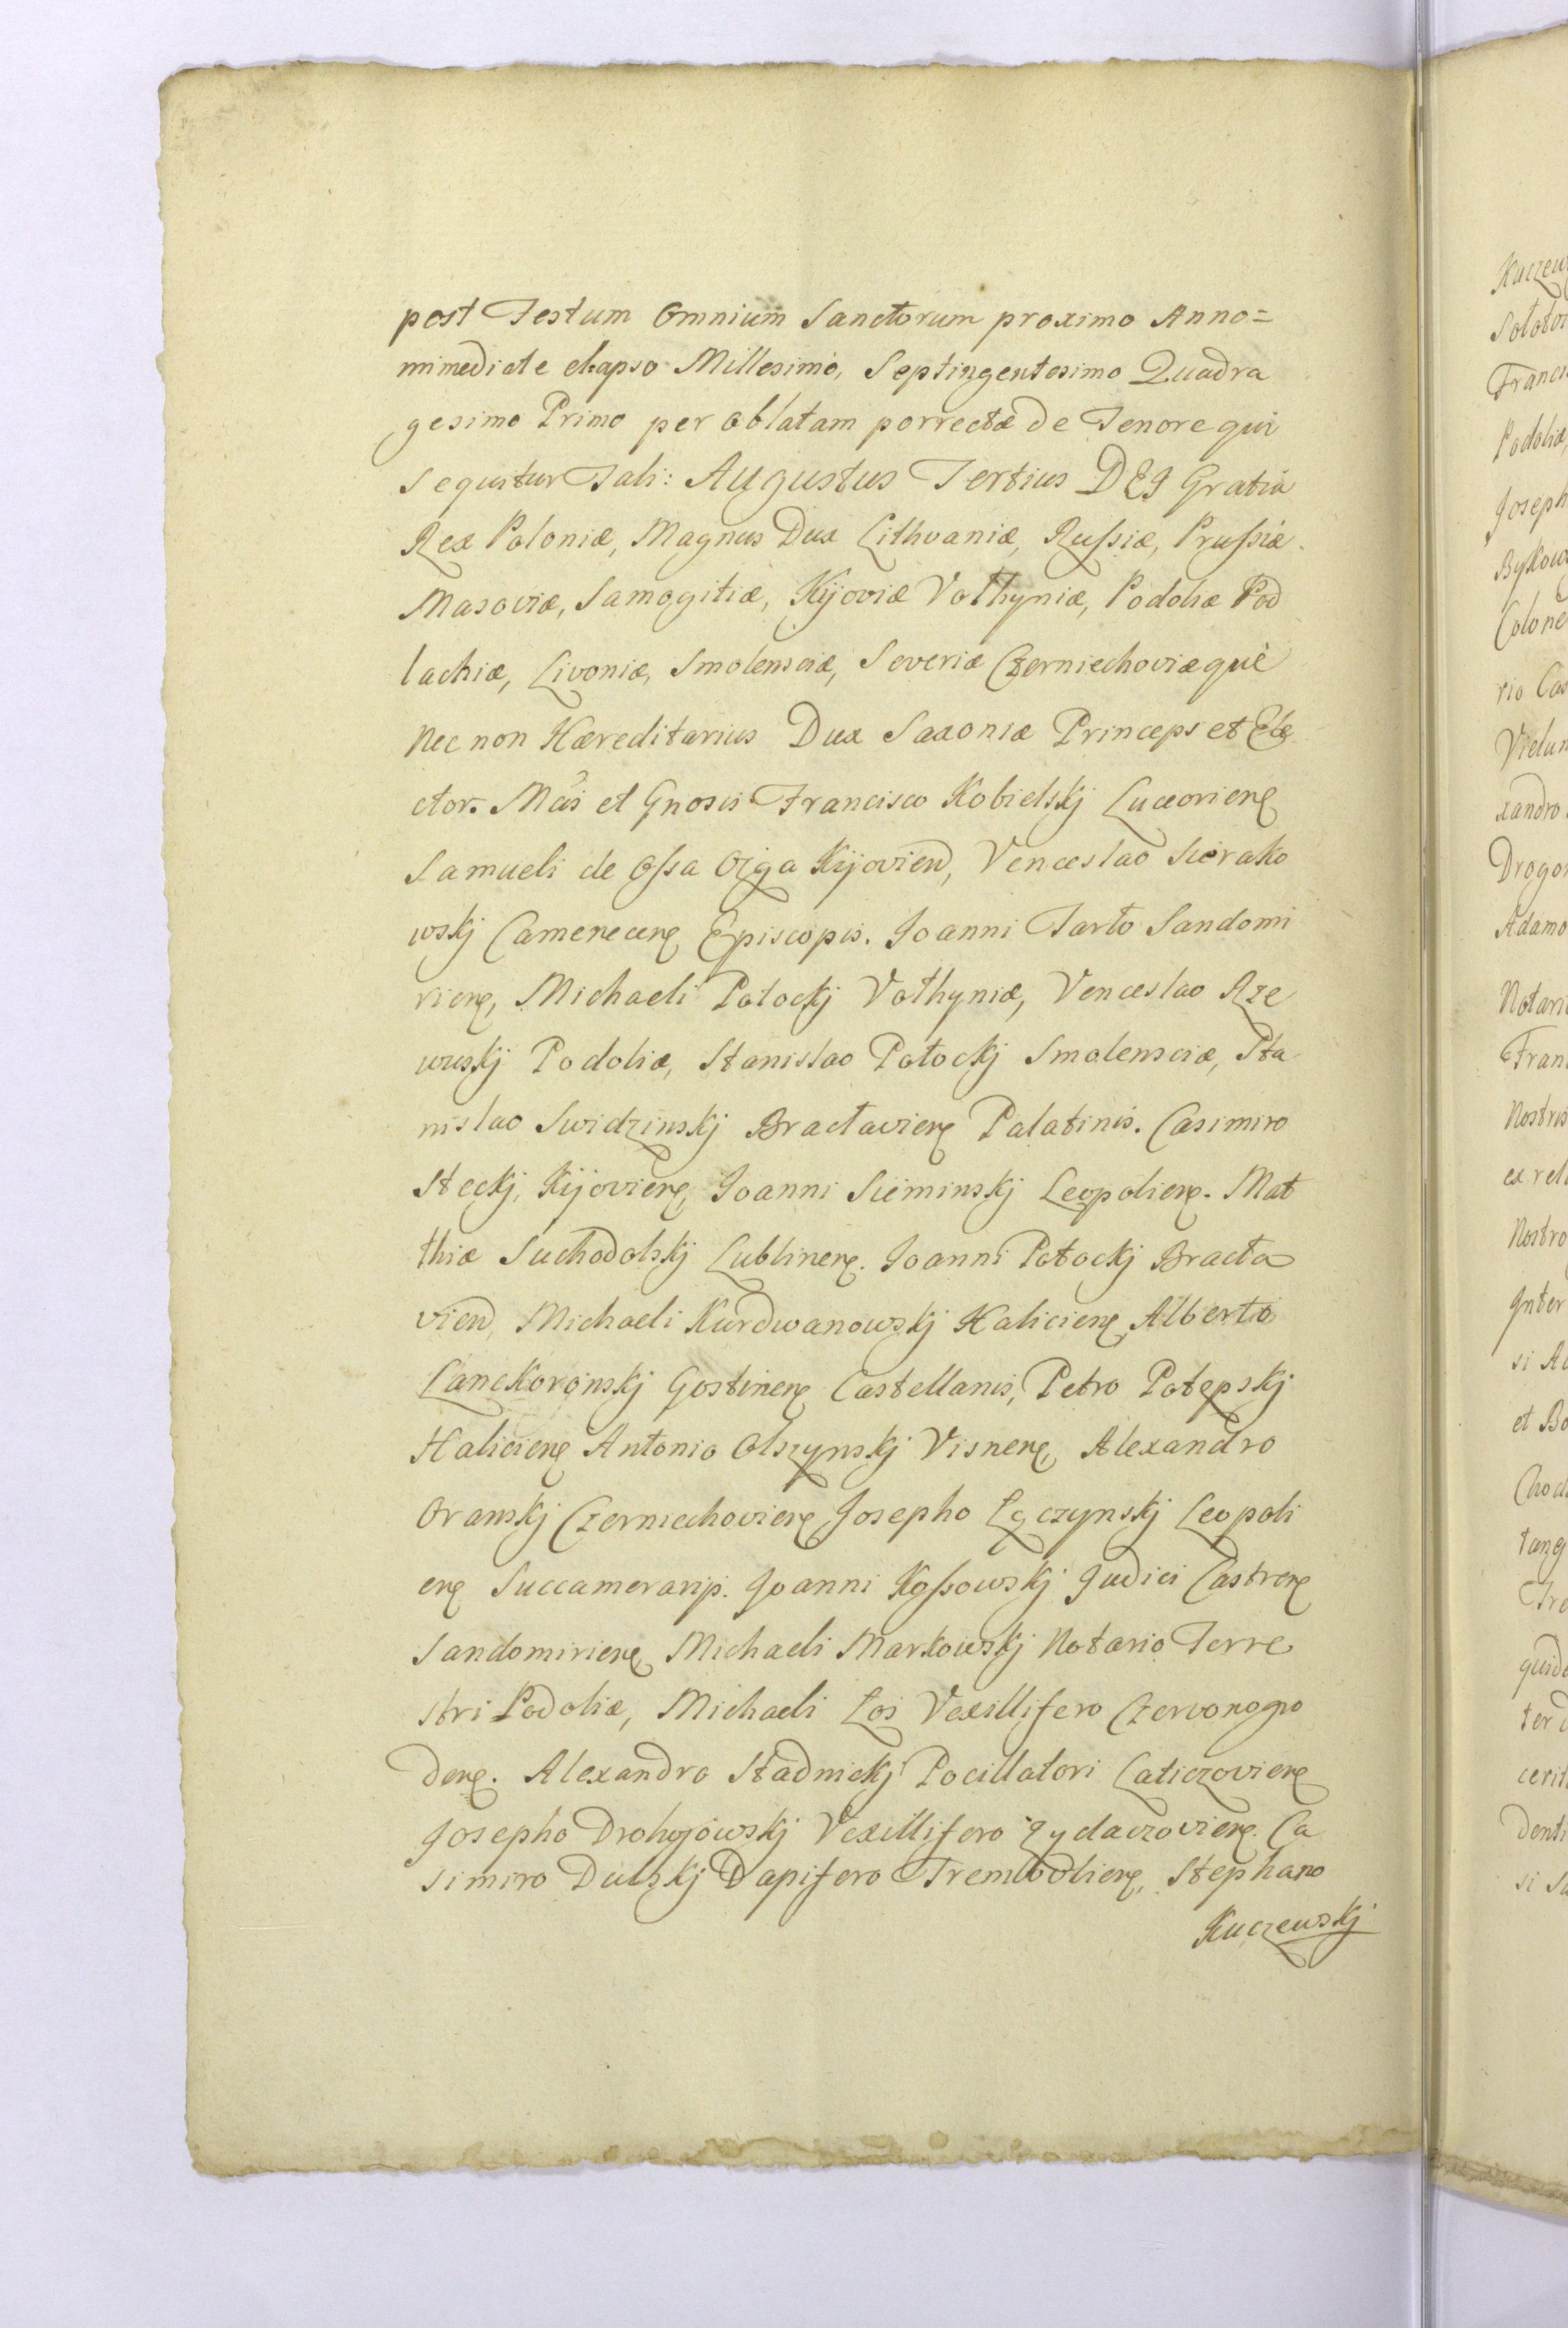 post Festum Omnium Sanctorum proximo Anno=
immediate elapso Millesimò, Septingentesimo Quadra
gesimo Primo per Oblatam porrectæ de Tenore qui
sequitur Tali: Augustus Tertius DEI Gratiâ
Rex Poloniæ, Magnus Dux Lithvaniæ, Russiæ, Prussiæ.
Masoviæ, Samogitiæ, Kijoviæ Vołhyniæ, Podoliæ Pod
lachiæ, Livoniæ, Smolensciæ, Severiæ Czerniechoviæquè
nec non Hæreditarius Dux Saxoniæ Princeps et Ele
ctor. Mcis et Gnosis Francisco Kobielskj Luceorien
Samueli de Ossa Ożga Kijovien, Venceslao Sierako
wskj Camenecen Episcopis. Joanni Tarło Sandomi
rien, Michaeli Potockj Vołhyniæ, Venceslao Rze
wuskj Podoliæ, Stanislao Potockj Smolensciæ, Sta
nislao Swidzinskj Bracłavien Palatinis. Casimiro
Steckj, Kijovien, Joanni Siéminskj Leopolien. Mat
thiæ Suchodolskj Lublinen. Joanni Potockj Bracła
vien, Michaeli Kurdwanowskj Halicien, Alberto
Lanckorońskj Gostinen Castellanis, Petro Potępskj
Halicien Antonio Olszynskj Visnen, Alexandro
Oranskj Czerniechovien Josepho Łączynskj Leopoli
en Succamerarijs. Joanni Kossowskj Judici Castren
Sandomirien, Michaeli Markowskj Notario Terre
stri Podoliæ, Michaeli Łoś Vexillifero Czervonogro
den. Alexandro Stadnickj Pocillatori Laticzovien
Josepho Drohojówskj Vexillifero Żydaczovien. Ca
simiro Dulskj Dapifero Trembovlien, Stephano
Kuczewskj